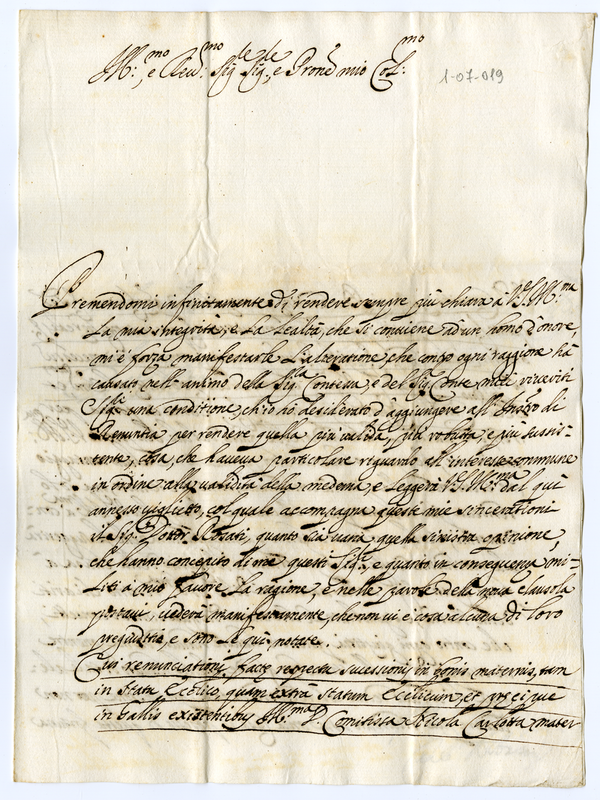 Ill:mo, e Rev:mo Sig.le Sig.le, e Prone mio Col:mo
1-07-019
Premendomi infinitamente di rendere sempre più chiara à V.S. Ill:ma
La mia integrità, e La Lealtà, che si conviene ad un homo d'onore,
mi è forza manifestarle L'alteratione, che contro ogni raggione hà
causato nell'animo della Sig.la Contessa, e del Sig. Conte miei riveriti
Sig.li una conditione, ch'io hò desiderato d'aggiungere all'
Renuntia per rendere quella più valida, più robusta, e più sussis-
tente, Cosa, che haveva particolare riguardo all'interesse commune
in ordine alla validità della medema, e Leggerà V.S. Ill:ma dal quì
annesso viglietto, col quale accompagna queste mie sincerationi
il Sig. Dottr. Rosati, quanto sia vana quella sinistra opinione,
che hanno concepito di me questi Sig.ri, e quanto in conseguenza mi-
liti à mio favore La ragione, e nelle parole della nova clausola
vederà manifestamente, che non vi è cosa alcuna di loro
pregiuditio, e sono Le quì notate.
Cui renunciationi facte respectu sucessionis in bonis maternis, tam
in Statu Ecclico, quam extrà Statum Ecclicum, et
in Gallis existentibus Ill:ma D. Comitissa Nicola Carlotta mater